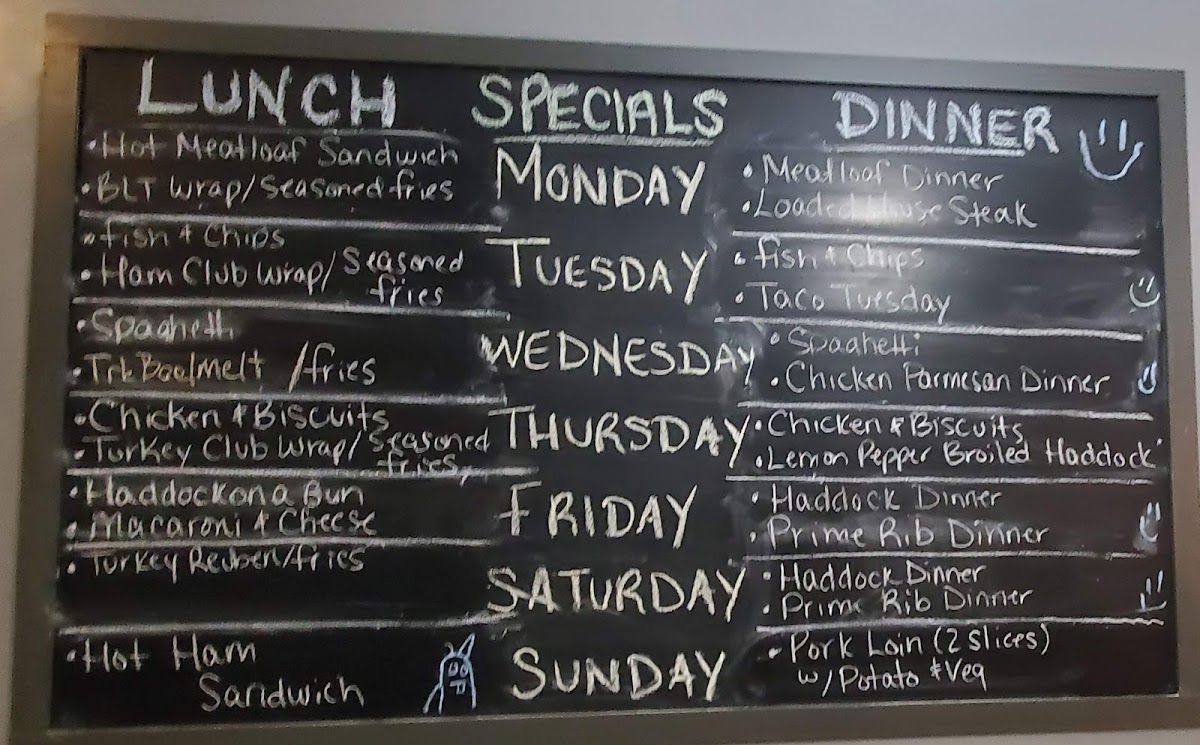 LUNCH SPECIALS DINNER
• Hot Meatloaf Sandwich
• BLT Wrap/Seasoned fries
MONDAY
• Meatloaf Dinner
• Loaded House Steak
• Fish & Chips
• Ham Club Wrap/Seasoned
fries
TUESDAY
• Fish & Chips
• Taco Tuesday
• Spaghetti
• melt /fries
WEDNESDAY
• Spaghetti
• Chicken Parmesan Dinner
• Chicken & Biscuits
• Turkey Club Wrap/Seasoned
fries
THURSDAY
• Chicken & Biscuits
• Lemon Pepper Broiled Haddock
• Haddock on a Bun
• Macaroni & Cheese
FRIDAY
• Haddock Dinner
• Prime Rib Dinner
• Turkey Reuben/fries
SATURDAY
• Haddock Dinner
• Prime Rib Dinner
• Hot Ham
Sandwich
SUNDAY
• Pork Loin (2 slices)
w/Potato & Veg